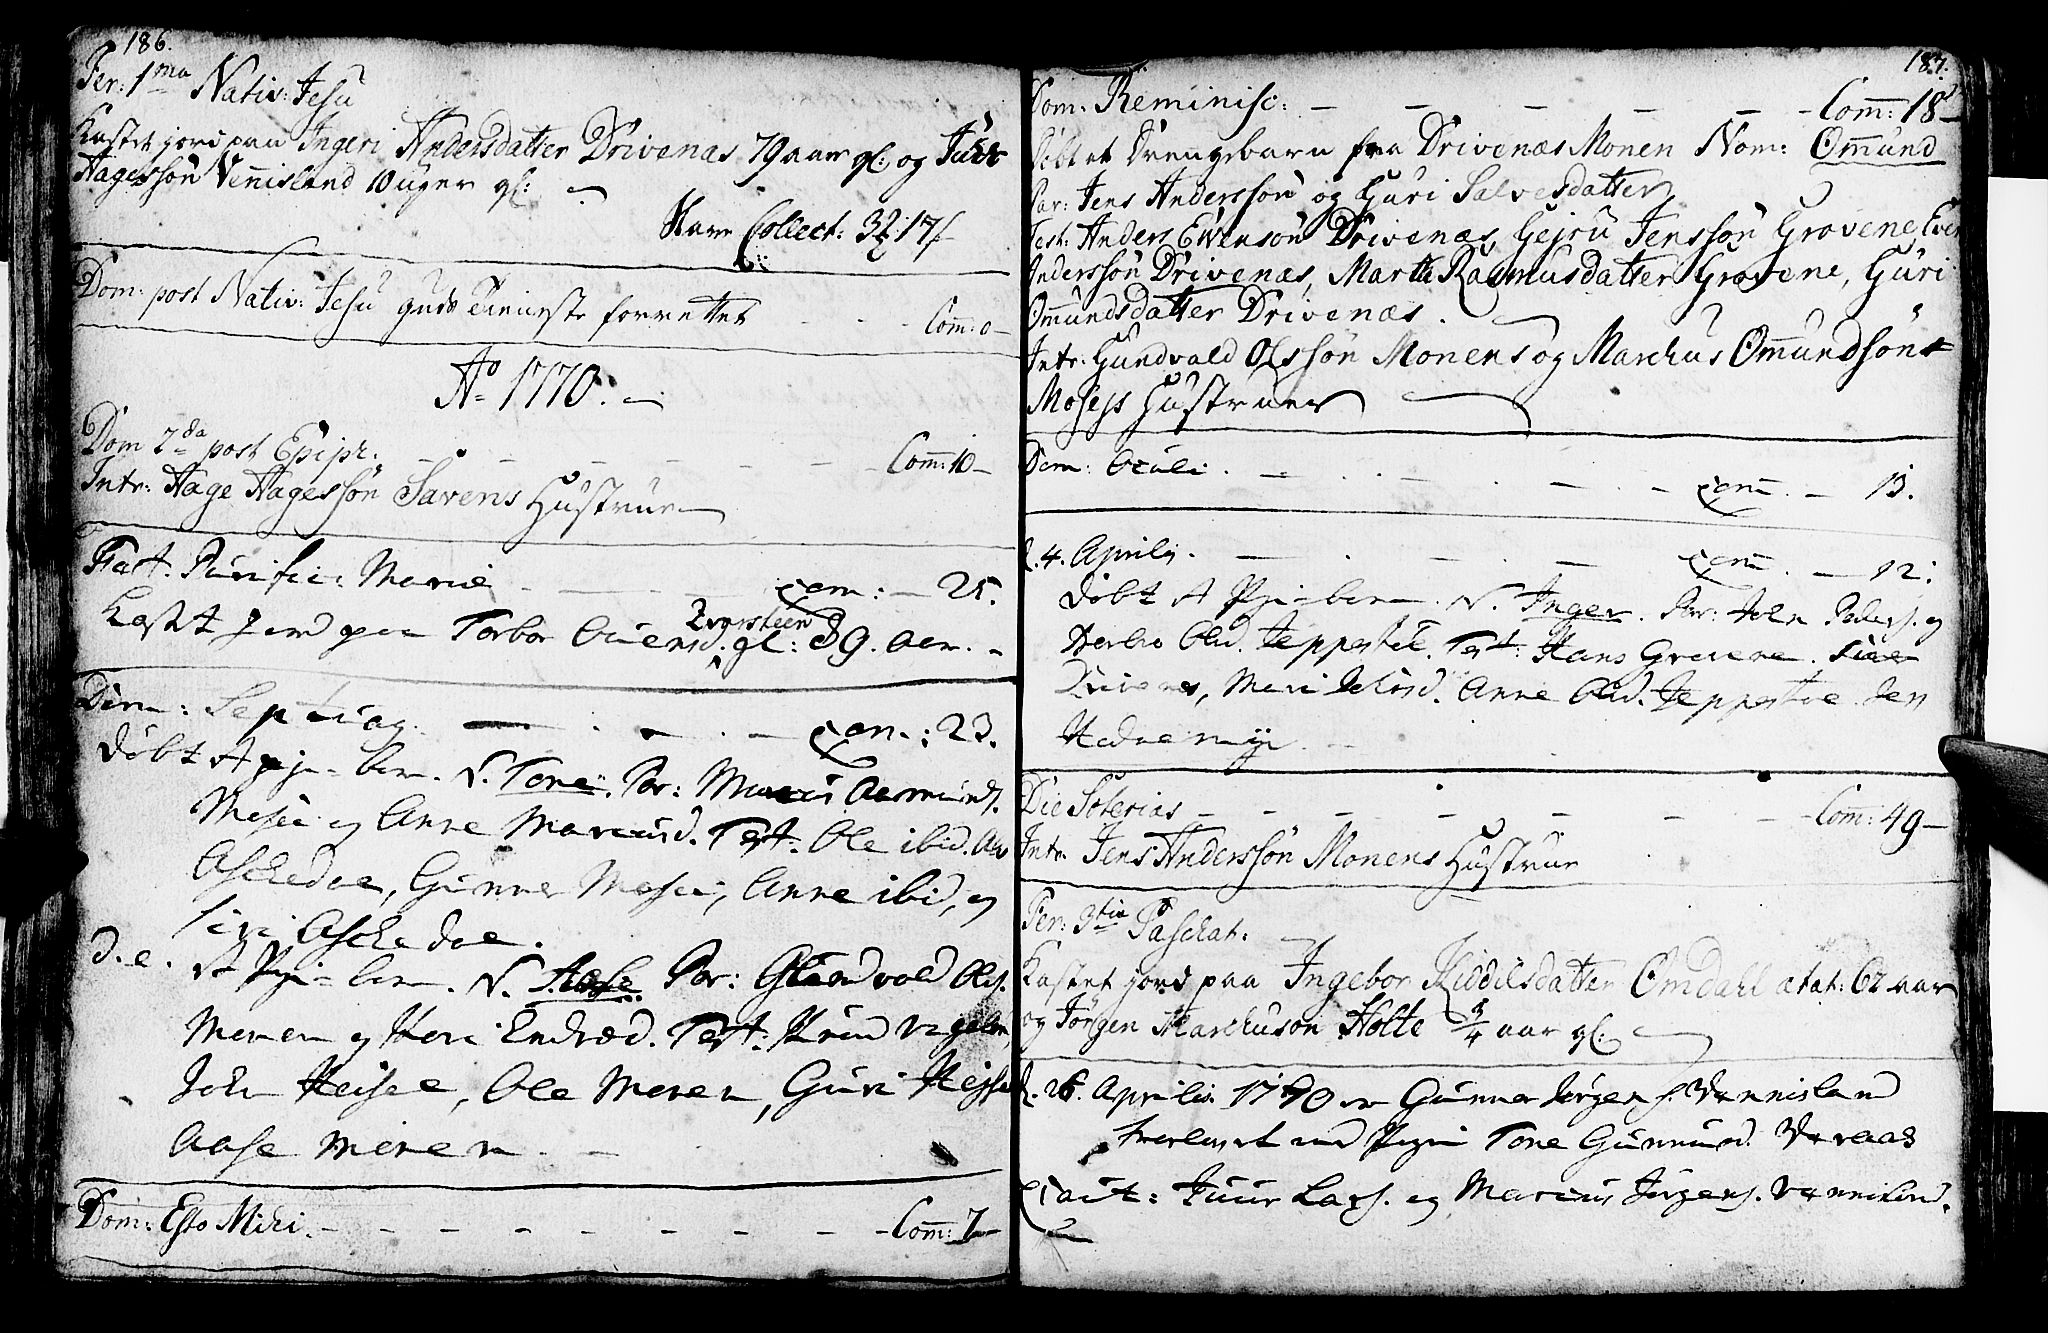 186.
Fer: 1ma Nativ: Jesu
Kastet jord paa Ingeri Andersdatter Drivenæs 79 aar gl: og
Hagessøn Vennisland 10 uger gl:
Collect: 17
Dom: post Nativ: Jesu guds tieniste forrettet - - - Com: 0-
Ao 1770.
Dom 2da post Epiph: - - - - - - Com: 10-
Intr: Hage Hagessøn Savens Hustrue
Fest. Purific: Mariæ - - - Com: - 25.
Kastet Jord paa Torbor gl: 89. Aar. -
Dom: Septuag. - - - Com: 23.
døbt et pige-barn. N. Tone. Par: Marcus Aasmunds.
Mosei og Anne Marcusd. Test: Ole ibid.
Aschedae, Gunner Mosei, Anne ibid, og
Siri Aschedae.
d. e. et Pige-barn. N. Aase. Par: Gundvold Ols.
Monen og Endred. Test:
John Heisel, Ole Monen, Guri
Aase Monen.
Dom: Esto Mihi. - - - - - - - Com: 7-
187.
Dom: Reminisc: - - - - - Com: 18-
Døbt et Drengebarn fra Drivenæs Monen Nom: Omund
Par: Jens Anderssøn og Guri Salvesdatter
Test: Anders Evensøn Drivenæs, Gejru Jenssøn Grovene Even
Anderssøn Drivenæs, Marthe Rasmusdatter Grovene, Guri
Omundsdatter Drivenæs.
Intr: Gundvald Olssøn Monens og Marchus Omundsøns
Mosejs Hustruer
Dom: Oculi. - - - - Com. - 13.
d. 4. Aprilis. - - - - Com. - 12.
døbt et Pige-barn. N. Inger. Par: John Peders. og
Olsd. Teppestøl. Test: Hans Grovene.
Drivenes, Mari Anne Olsd. Teppestøl. Jens
Die Soterias - - - - - - - Com: 49-
Intr. Jens Anderssøn Monens Hustrue
Fer: 3tia Paschat:
Kastet jord paa Ingebor Kiddelsdatter Omdahl ætat: 62 aar
og Jørgen Marchusøn Holte 3/4 aar gl:
d. 26. Aprilis 1770 er Gunner Jørgens. Vennisland
trolovet med Pigen Tone Gunnusd. Væraas
Caut: Juur Lars. og Marcus Jørgens. Vennisland.